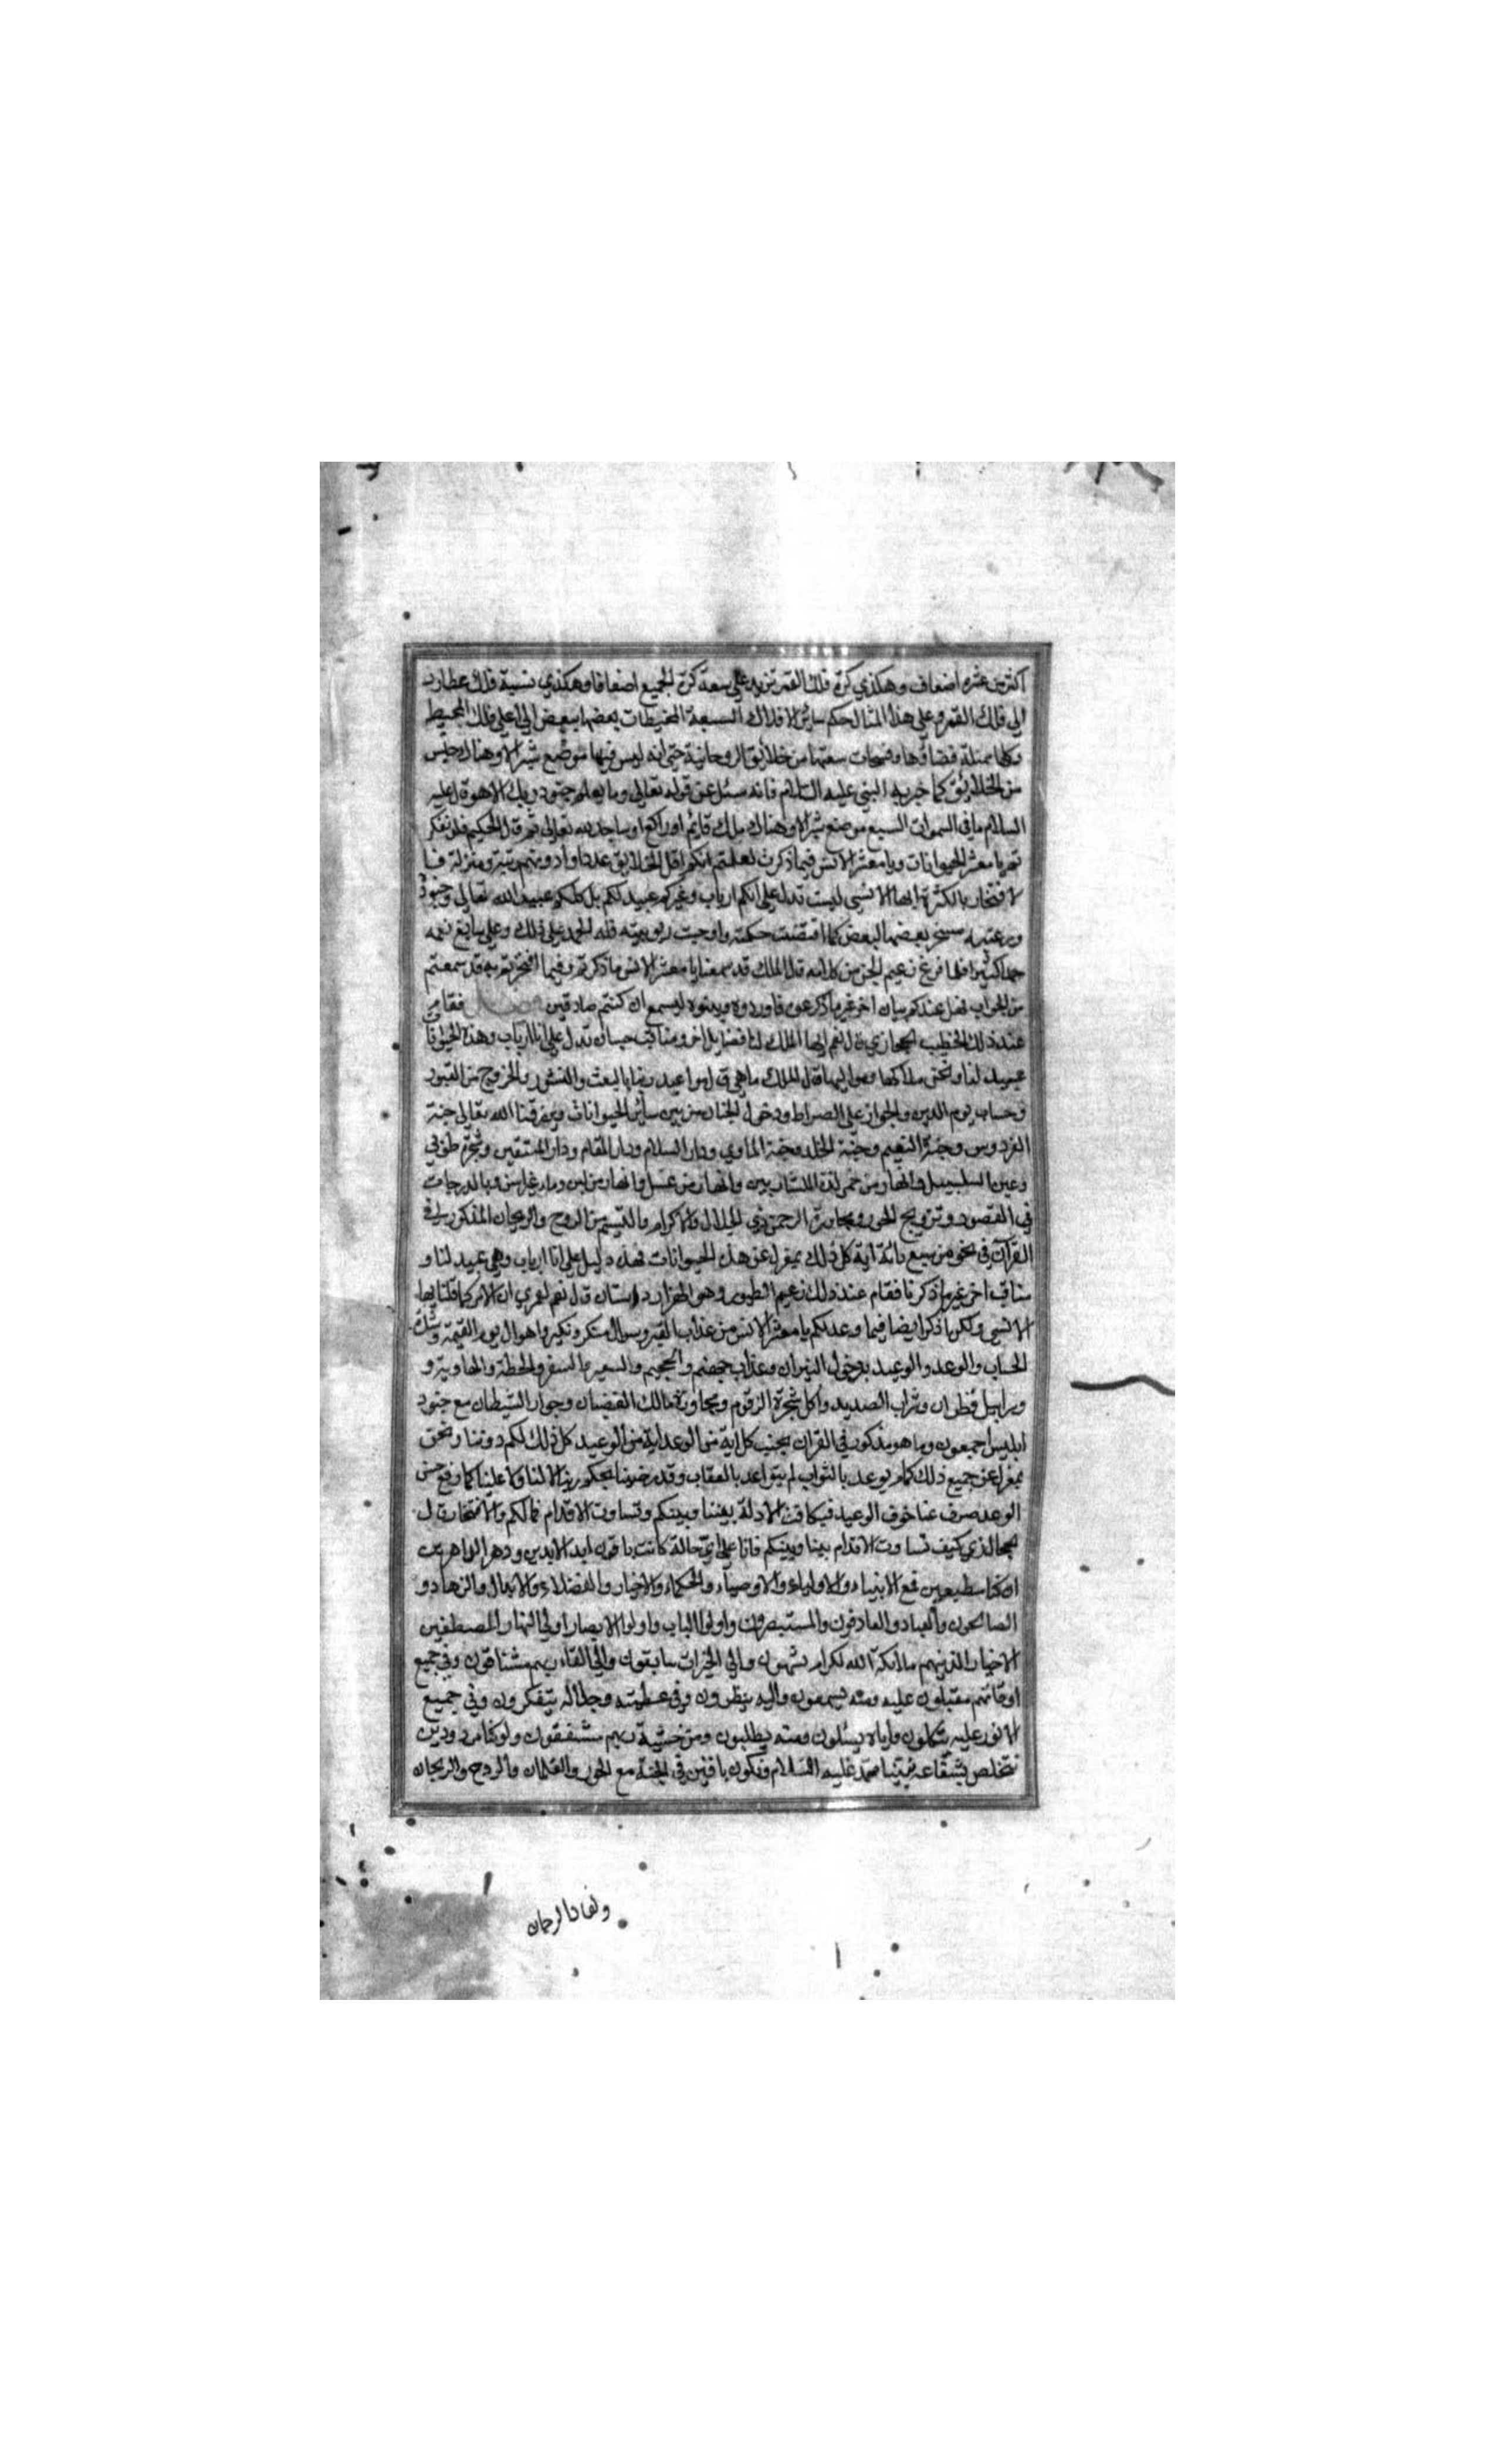 اكثر من عشره اضعاف وهكذي كرة فلك القمر تزيد علي سعة كرة الجميع اضعافا وهكذي نسبة فلك عطارد
الي فلك القمر وعلي هذا المثال حكم سائر الافلاك السبعة المحيطات بعضها ببعض الي اعلي فلك المحيط
وكلها ممتلة فضاؤها وفسحات سعتها من خلائق الروحانية حتي انه ليس فيها موضع شبر الا وهناك جنس
من الخلائق كما خبر به النبي عليه السلام فانه سئل عن قوله تعالي وما يعلم جنود ربك الا هو قال عليه
السلام ما في السموات السبع موضع شبر الا وهناك ملك قائم او راكع او ساجد لله تعالي ثم قال الحكيم فلو تفكر
تم يا معشر الحيوانات ويا معشر الانس فيما ذكرت لعلمتم انكم اقل الخلايق عددا وادونهم رتبة ومنزلة فــا
لافتخار بالكثرة ايها الانسي ليست تدل علي انكم ارباب وغيركم عبيد لكم بل كلكم عبيد الله تعالي وجنوده
ورعيته سخر بعضها لبعض كما اقتضت حكمته واوجبت ربوبيته فله الحمد علي ذلك وعلي سابغ نعمه
حمدا كثيرا فلما فرغ زعيم الجن من كلامه قال الملك قد سمعنا يا معشر الانس ما ذكرتم وفيما افتخرتم به قد سمعتم
من الجواب فهل عندكم بيان اخر غير ما ذكرتموه فاوردوه وبينوه ليسمع ان كنتم صادقين فصل فقام
عند ذلك الخطيب الحجازي قال نعم ايها الملك لنا فضايل اخر ومناقب حسان تدل علي انا ارباب وهذه الحيوانا
عبيد لنا ونحن ملاكها ومواليها قال الملك ما هي قال مواعيد ربنا بالبعث والنشور والخروج من القبور
وحساب يوم الدين والجواز علي الصراط ودخول الجنان من بين سائر الحيوانات ويرزقنا الله تعالي جنة
الفردوس وجنة النعيم وجنة الخلد وجنة الماوي ودار السلام ودار المقام ودار المتقين وشجرة طوبي
وعين السلسبيل وانهار من خمر لذة للشاربين وانهار من عسل وانهار من لبن وماء غير اسن وبالدرجات
في القصور وتزويج الحور ومجاورة الرحمن ذي الجلال والاكرام والتنسيم من الروح والريحان المذكور في
القرآن في نحو من سبع مائة آية كل ذلك بمعزل عن هذه الحيوانات فهذه دليل علي انا ارباب وهي عبيد لنا و
مناقب اخر غير ما ذكرنا فقام عند ذلك زعيم الطيور وهو الهزار داستان قال نعم لعمري ان الامر كما قلت ايها
الانسي ولكن ما ذكر ايضا فيما وعدكم يا معشر الانس من عذاب القبر وسوال منكر ونكير واهوال يوم القيمة وشدة
الحساب والوعد والوعيد بدخول النيران وعذاب جهنم والجحيم والسعير والسقر والحطمة والهاوية و
وسرابيل قطران وشراب الصديد واكل شجرة الزقوم ومجاورة مالك الغضبان وجوار الشيطان مع جنود
ابليس اجمعون وما هو مذكور في القران بجنب كل اية من الوعد اية من الوعيد كل ذلك لكم دوننا ونحن
بمعزل عن جميع ذلك كما لم يوعد بالثواب لم يتواعد بالعقاب وقد رضينا بحكم ربنا لا لنا ولا علينا كما رفع حسن
الوعد صرف عنا خوف الوعيد فتكافت الادلة بيننا وبينكم وتساوت الاقدام فما لكم والافتخار قال
الحجازي كيف تساوت الاقدام بيننا وبينكم فانا علي اي حالة كانت باقون ابد الابدين ودهر الداهرين
ان كنا مطيعين فمع الانبياء والاولياء والاوصياء والحكماء والاخيار والفضلاء والابدال والزهاد و
الصالحون والعباد والعارفون والمستبصرون واولوا الالباب واولوا الابصار اولي النهار المصطفين
الاخيار الذينهم ملائكة الله لكرام يشبهون والي الخيرات سابقون والي لقاء ربهم مشتاقون وفي جميع
اوقاتهم مقبلون عليه ومنه يسمعون واليه ينظرون وفي عظمته وجلاله يتفكرون وفي جميع
الامور عليه يتكلون واياه يسئلون ومنه يطلبون ومن خشية ربهم مشفقون ولو كنا مردودين
نتخلص بشفاعة نبينا محمد عليه السلام ونكون باقين في الجنة مع الحور والغلمان والروح والريحان